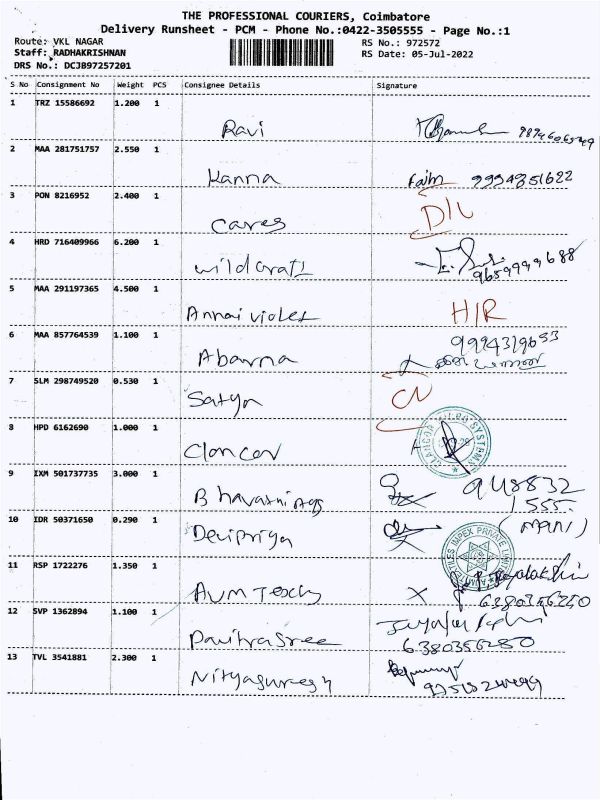 THE PROFESSIONAL COURIERS, Coimbatore
Delivery Runsheet - PCM - Phone No.:0422-3505555 - Page No.:1
Route: VKL NAGAR
RS No.: 972572
Staff: RADHAKRISHNAN
RS Date: 05-Jul-2022
DRS No.: DCJ897257201
S No Consignment No Weight PCS Consignee Details Signature
1 TRZ 15586692 1.200 1
Ravi
2 MAA 281751757 2.550 1
Kanna 9994351622
3 PON 8216952 2.400 1
Cares D/L
4 HRD 716409966 6.200 1
wildcraft
9659999688
5 MAA 291197365 4.500 1
Annai violet H/R
6 MAA 857764539 1.100 1
Abarna
7 SLM 298749520 0.530 1
Satya
8 HPD 6162690 1.000 1
Clancor
CLANCOR MICRO SYSTEMS
9 IXM 501737735 3.000 1
948832
1555
10 IDR 50371650 0.290 1
Devipriya (MANI)
11 RSP 1722276 1.350 1
IMPEX PRIVATE
6380356250
12 SVP 1362894 1.100 1
Pavitrasree
6380356250
13 TVL 3541881 2.300 1
Nityasuresh